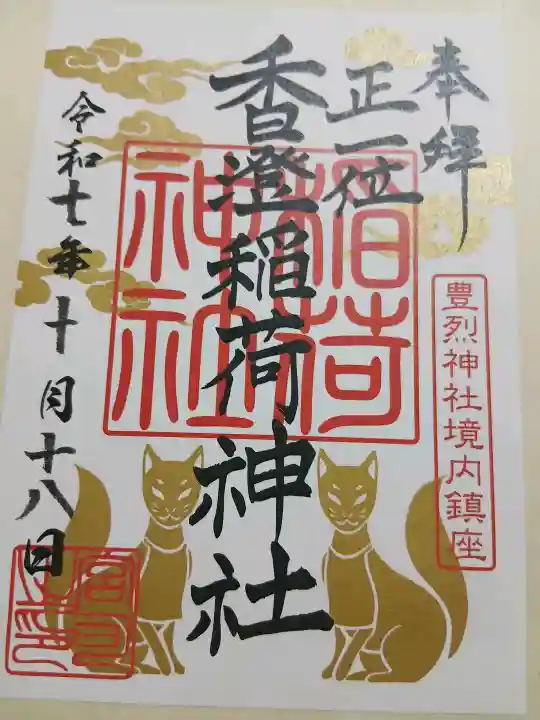 奉拝
正一位
香澄稲荷神社
令和七年十月十八日
稲荷神社
豊烈神社境内鎮座